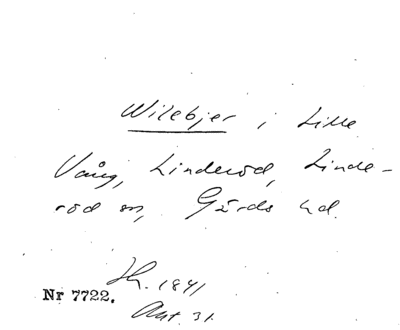 Wilebjer i Lille
Vång, Linderöd, Linde-
röd sn, Gärds hd.
Nr 7722.
Ht. 1841
Ant. 31.